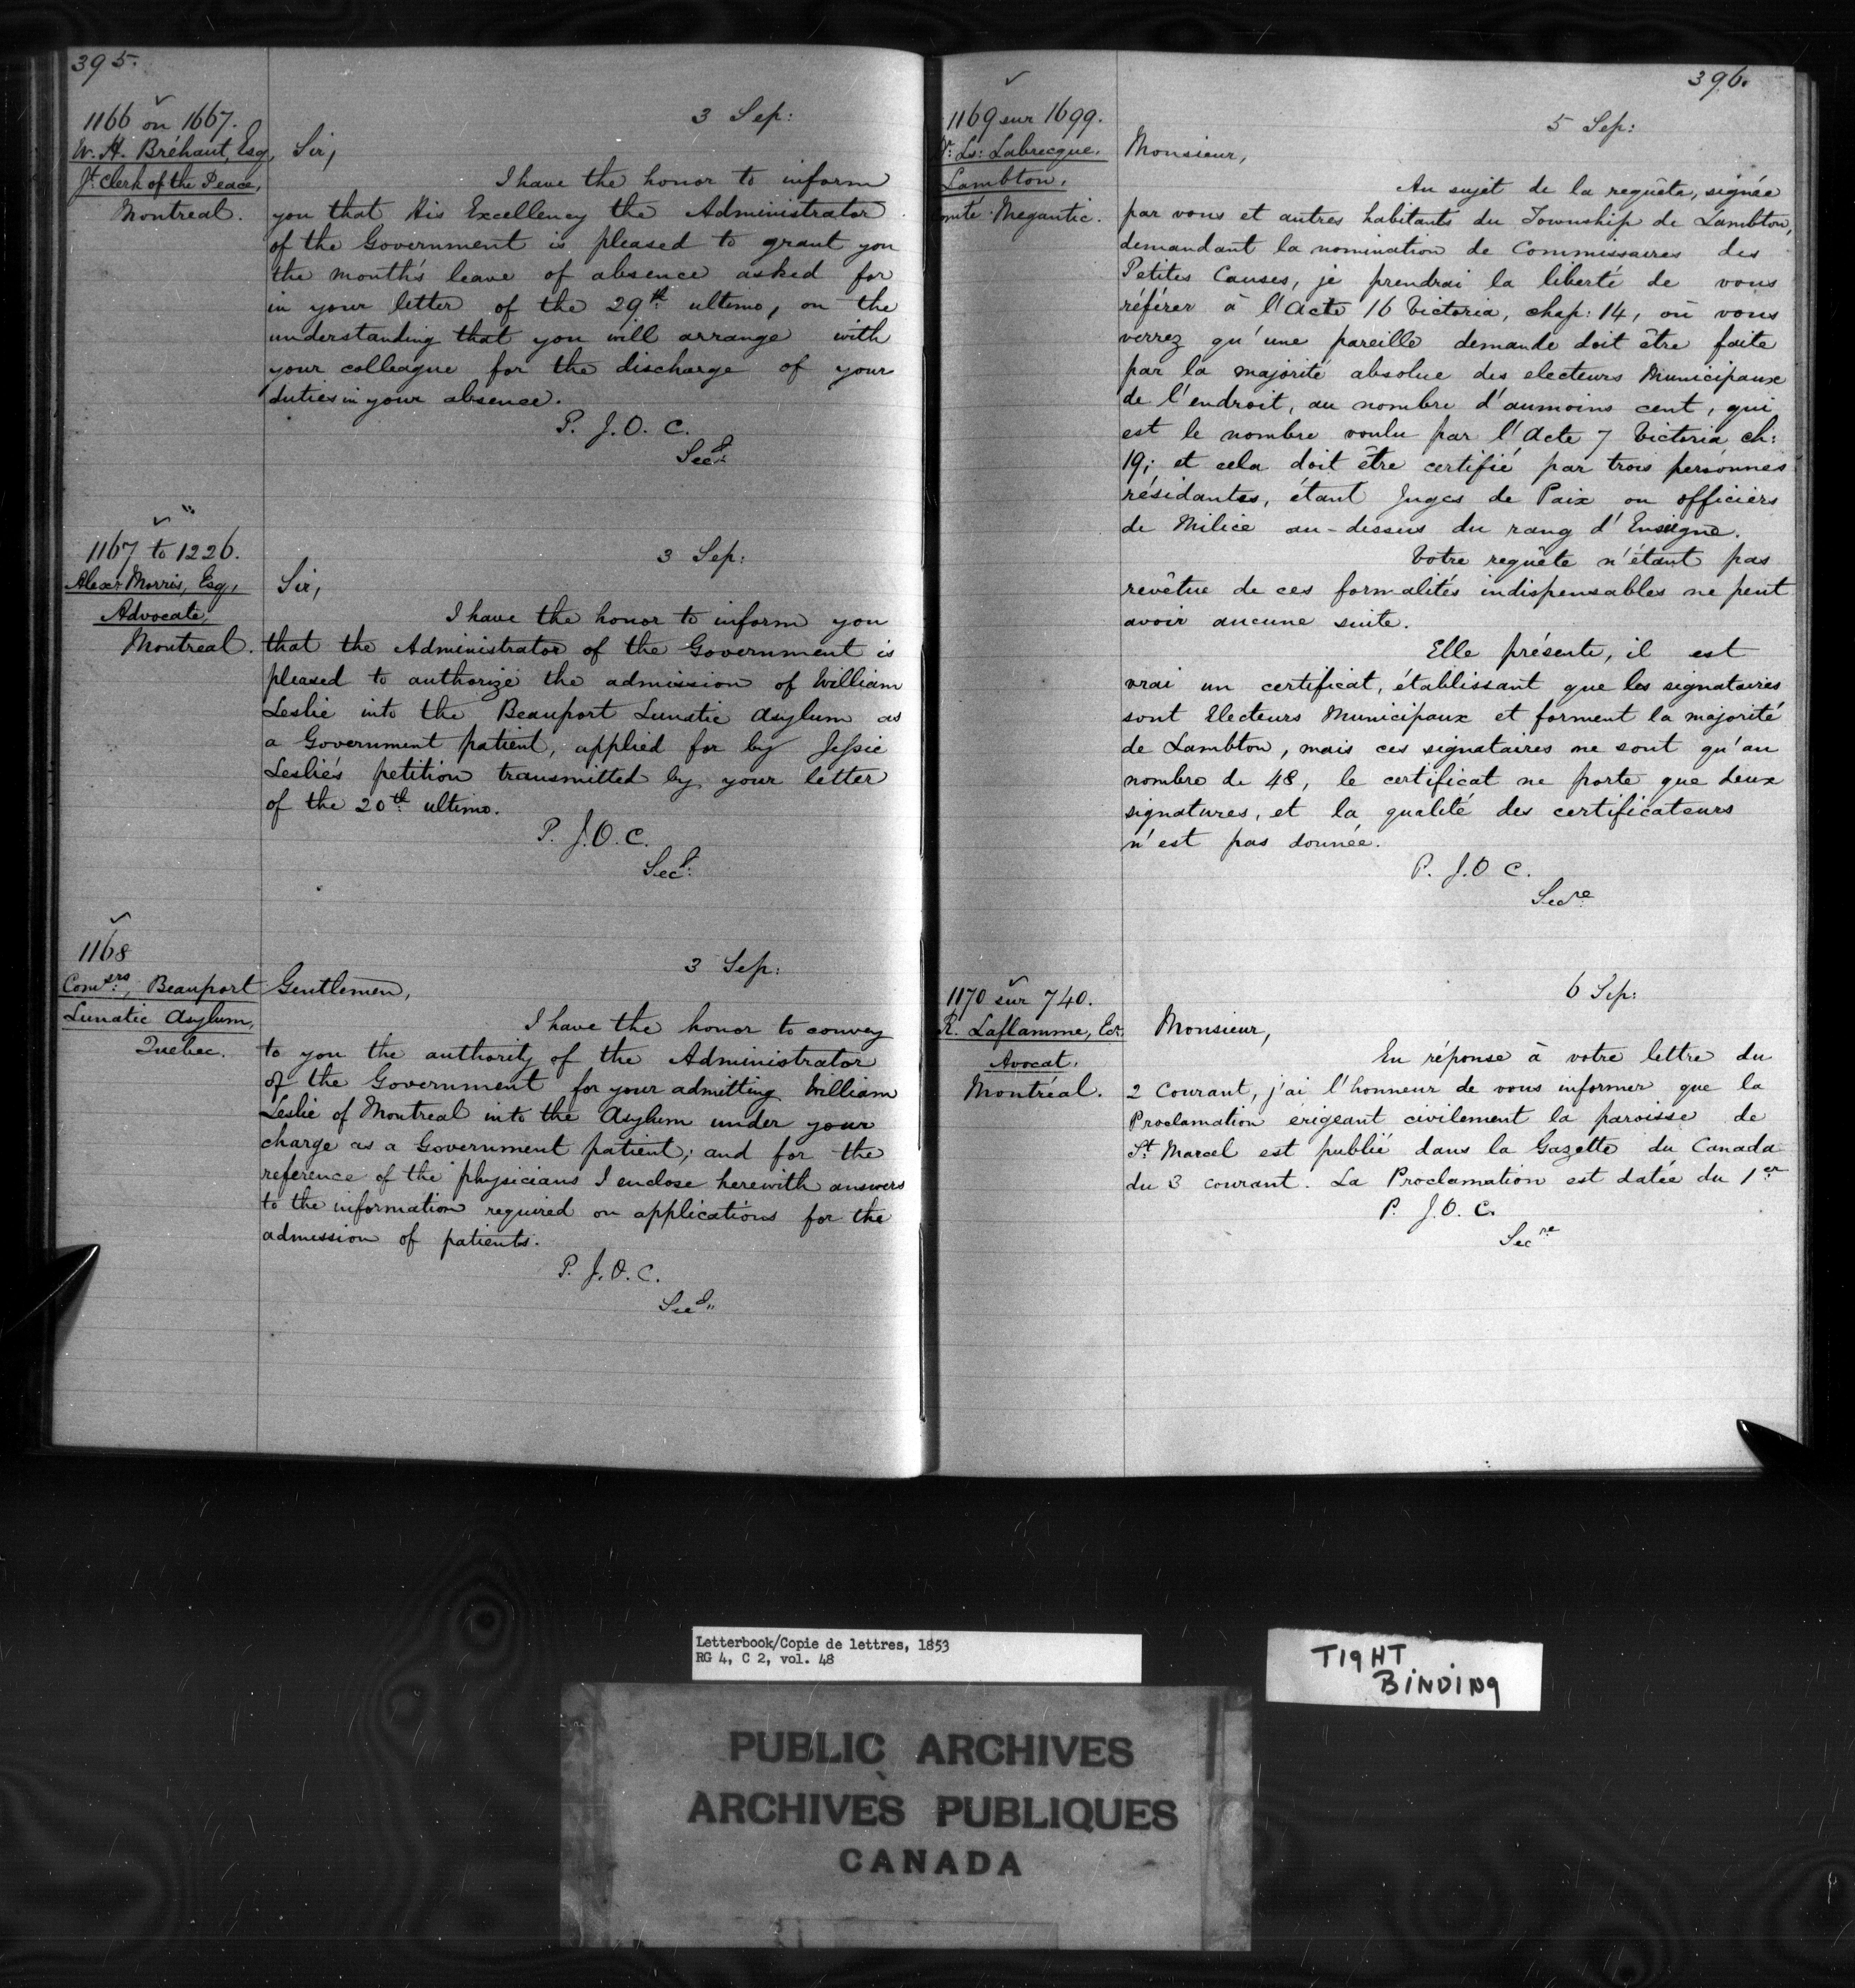 395.
1166 on 1667.
W. H. Bréhaut, Esq,
Jt. Clerk of the Peace,
Montreal.
3 Sep:
Sir,
I have the honor to inform
you that His Excellency the Administrator
of the Government is pleased to grant you
the month's leave of absence asked for
in your letter of the 29th ultimo, on the
understanding that you will arrange with
your colleague for the discharge of your
duties in your absence.
P. J. O. C.
Secy.
1167 to 1226.
Alexr. Morris, Esq,
Advocate,
Montreal.
3 Sep:
Sir,
I have the honor to inform you
that the Administrator of the Government is
pleased to authorize the admission of William
Leslie into the Beauport Lunatic Asylum as
a Government patient, applied for by Jessie
Leslie's petition transmitted by your letter
of the 20th ultimo.
P. J. O. C.
Secy.
1168
Comsrs, Beauport
Lunatic Asylum,
Quebec.
3 Sep:
Gentlemen,
I have the honor to convey
to you the authority of the Administrator
of the Government for your admitting William
Leslie of Montreal into the Asylum under your
charge as a Government patient; and for the
reference of the physicians I enclose herewith answers
to the information required on applications for the
admission of patients.
P. J. O. C.
Secy.
396.
1169 sur 1699.
Ls: Labrecque,
Lambton,
Megantic.
5 Sep:
Monsieur,
Au sujet de la requête, signée
par vous et autres habitants du Township de Lambton,
demandant la nomination de Commissaires des
Petites Causes, je prendrai la liberté de vous
référer à l'Acte 16 Victoria, chap: 14, où vous
verrez qu'une pareille demande doit être faite
par la majorité absolue des electeurs Municipaux
de l'endroit, au nombre d'aumoins cent, qui
est le nombre voulu par l'Acte 7 Victoria ch:
19; et cela doit être certifié par trois personnes
résidantes, étant Juges de Paix ou officiers
de Milice au-dessus du rang d'Enseigne.
Votre requête n'étant pas
revêtue de ces formalités indispensables ne peut
avoir aucune suite.
Elle présente, il est
vrai un certificat, établissant que les signataires
sont Electeurs Municipaux et forment la majorité
de Lambton, mais ces signataires ne sont qu'au
nombre de 48, le certificat ne porte que deux
signatures, et la qualité des certificateurs
n'est pas donnée.
P. J. O C.
Secre
1170 sur 740.
R. Laflamme, Ecr.
Avocat,
Montréal.
6 Sep:
Monsieur,
En réponse à votre lettre du
2 Courant, j'ai l'honneur de vous informer que la
Proclamation erigeant civilement la paroisse de
St. Marcel est publié dans la Gazette du Canada
du 3 courant. La Proclamation est datée du 1er
P. J. O. C.
Secre
Letterbook/Copie de lettres, 1853
RG 4, C 2, vol. 48
TIGHT
BINDING
PUBLIC ARCHIVES
ARCHIVES PUBLIQUES
CANADA